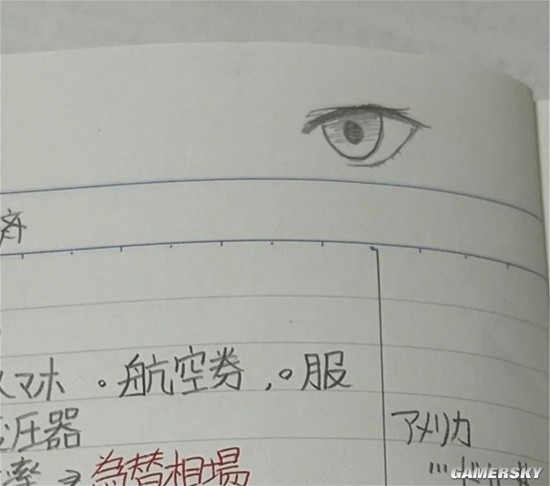 済
スマホ 。航空券 , 。服
圧器
アメリカ
率 → 為替相場
GAMERSKY